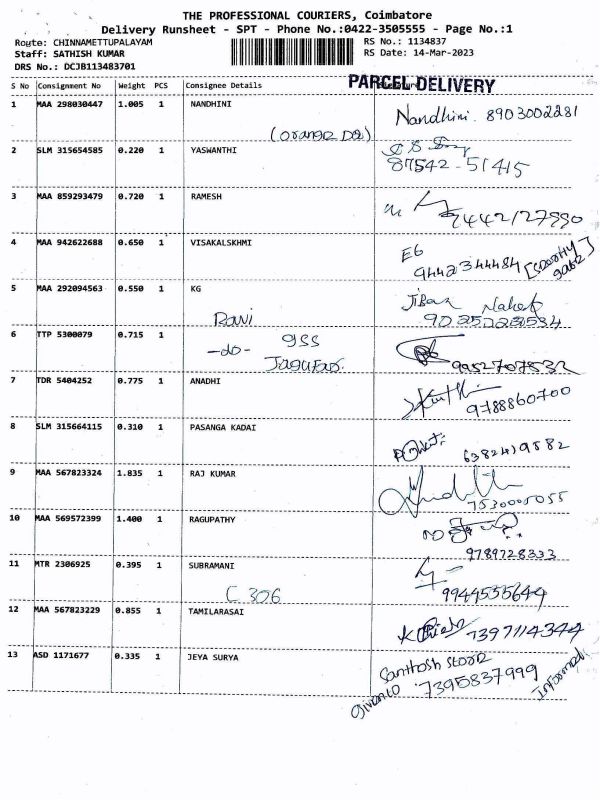 THE PROFESSIONAL COURIERS, Coimbatore
Delivery Runsheet - SPT - Phone No.:0422-3505555 - Page No.:1
Route: CHINNAMETTUPALAYAM RS No.: 1134837
Staff: SATHISH KUMAR RS Date: 14-Mar-2023
DRS No.: DCJB113483701
S No Consignment No Weight PCS Consignee Details PARCEL DELIVERY
1 MAA 298030447 1.005 1 NANDHINI Nandhini. 8903002281
(orange DQ)
2 SLM 315654585 0.220 1 YASWANTHI
87542-51415
3 MAA 859293479 0.720 1 RAMESH
9442127990
4 MAA 942622688 0.650 1 VISAKALSKHMI E6
9442344484
5 MAA 292094563 0.550 1 KG
Ravi
6 TTP 5300079 0.715 1 gss
-do- 9952707532
7 TDR 5404252 0.775 1 ANADHI
9788860700
8 SLM 315664115 0.310 1 PASANGA KADAI
6382419882
9 MAA 567823324 1.835 1 RAJ KUMAR
7530005055
10 MAA 569572399 1.400 1 RAGUPATHY
9789728333
11 MTR 2306925 0.395 1 SUBRAMANI
C 306 9944535644
12 MAA 567823229 0.855 1 TAMILARASAI
7397114344
13 ASD 1171677 0.335 1 JEYA SURYA Santhosh store
Given to 7395837999 Informed